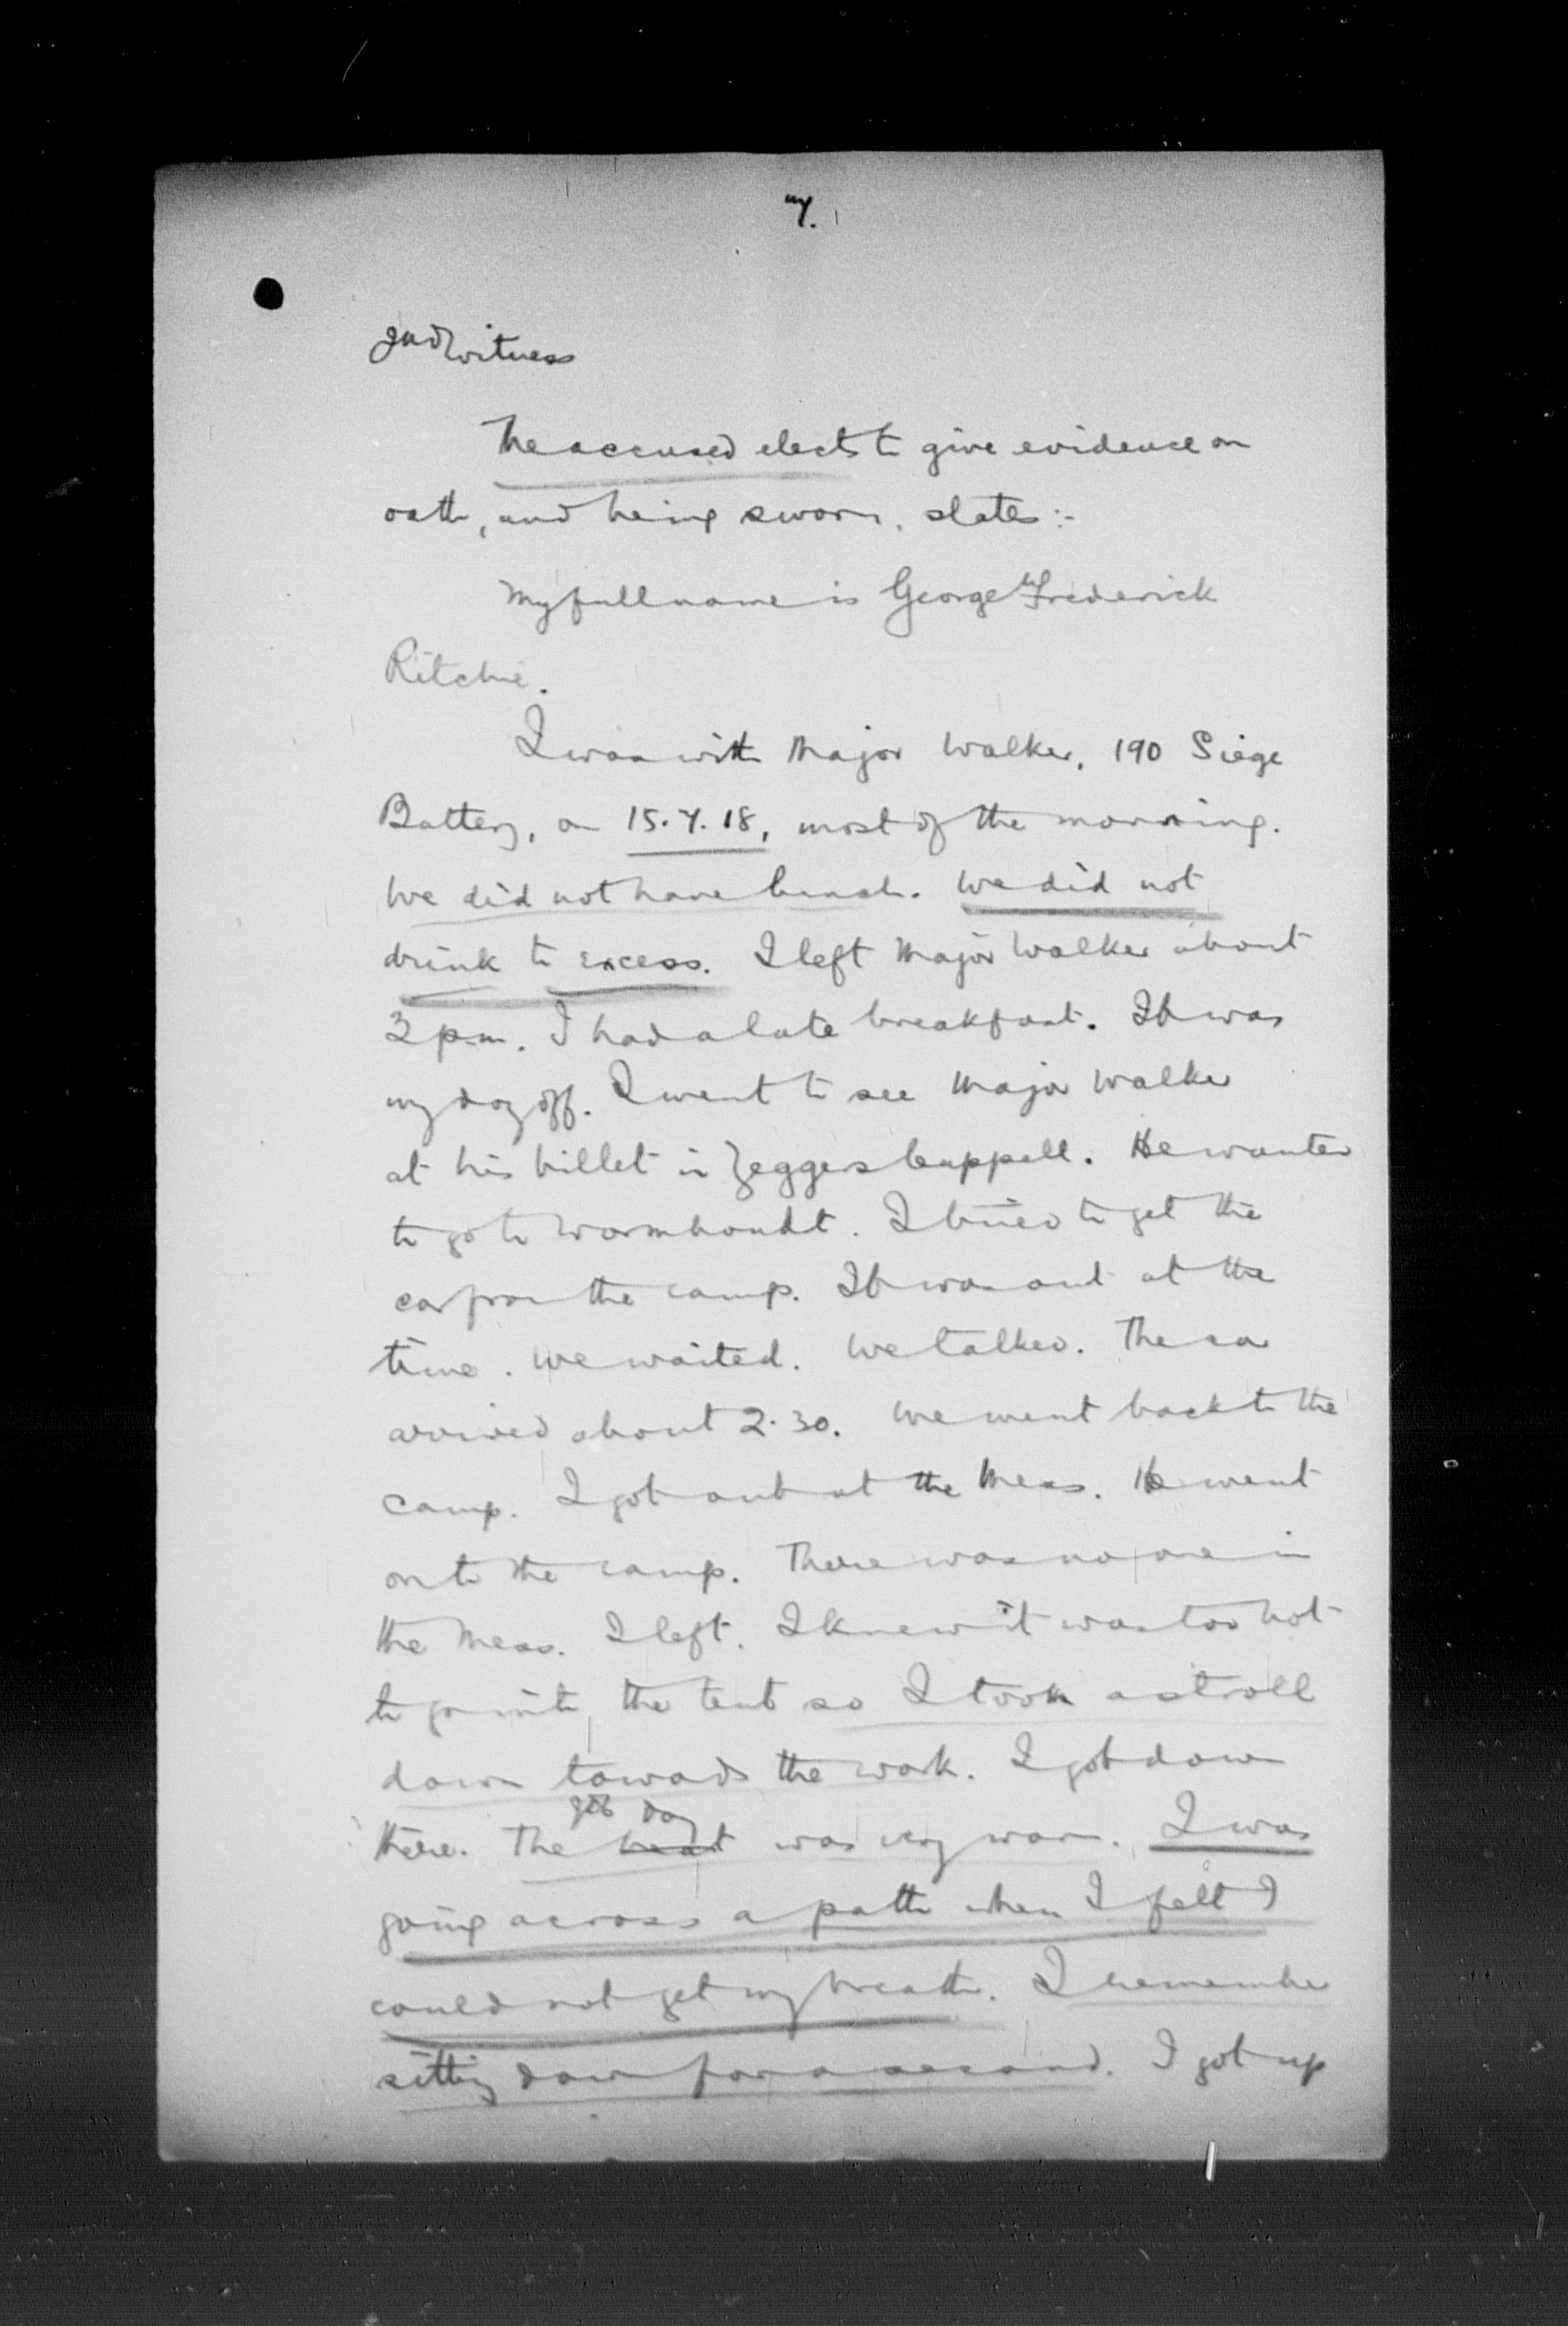 7.
2nd witness
The accused elects to give evidence on
oath, and being sworn, states:-
My full name is George Frederick
Ritchie.
I was with Major Walker, 190 Siege
Battery, on 15.7.18, most of the morning.
We did not have lunch. We did not
drink to excess. I left Major Walker about
3 pm. I had a late breakfast. It was
my day off. I went to see Major Walker
at his billet in Zeggerscappell. He wanted
to go to Wormhoudt. I tried to get the
car from the camp. It was out at the
time. We waited. We talked. The car
arrived about 2.30. We went back to the
camp. I got out at the Mess. He went
on to the camp. There was no one in
the Mess. I left. I knew it was too hot
to go into the tent so I took a stroll
down towards the work. I got down
there. The heat day was very warm. I was
going across a path when I felt I
could not get my breath. I remember
sitting down for a second. I got up